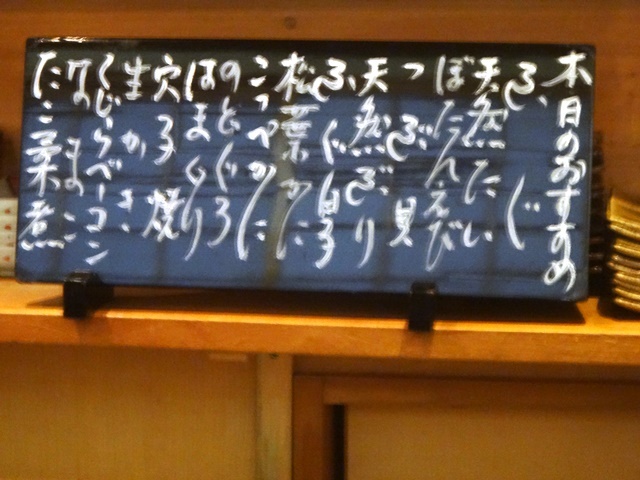 本日のおすすめ
ふぐ
天然たい
ぼたんえび
つぶ貝
天然ぶり
ふぐ白子
松葉かに
こっぺかに
のどぐろ
はまぐり
穴子焼
生かき
くじらベーコン
なまこ
たこ柔煮